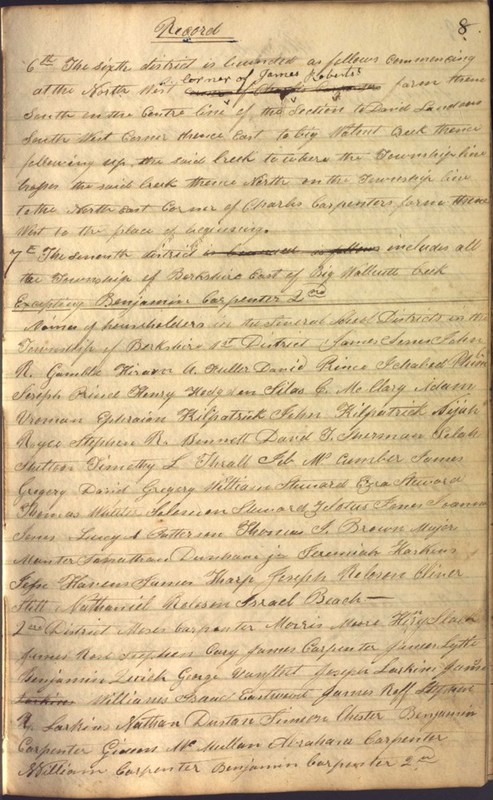 Record
8
6th The sixth district is bounded as follows commencing
at the North West corner of James Roberts farm thence
South in the Centre line of the Section to David Landons
South West Corner thence East to big Walnut Creek thence
following up the said Creek to where the Township line
crosses the said Creek thence North on the Township line
to the North East Corner of Charles Carpenters farm thence
West to the place of beginning.
7th The seventh district is bounded as follows includes all
the Township of Berkshire East of Big Wallnutt Creek
Excepting Benjamin Carpenter 2nd
Names of householders in the several School Districts in the
Township of Berkshire 1st District James Jones John
R. Gamble Hiram A. Fuller David Prince Ichabod
Joseph Prince Henry Hodgden Silas C. McClary Adam
Vroman Ephraim Kilpatrick John Kilpatrick Elijah
Royce Stephen R. Bennett David T. Selah
Sutton Timothy L. Thrall Jb. McCumber James
Gregory David Gregory William Steward Ezra Steward
Thomas Solomon Steward Zelotus Jones
Jones Lucy Patterson Thomas S. Brown Major
Manter Jonathan Dunham jr Jeremiah Haskins
Hanson James Tharp Joseph Roloson Oliver
Stitt Nathaniel Roloson Israel Beach —
2nd District Moses Carpenter Morris More
James Rose Stephen Cary James Carpenter James Lytle
Benjamin George Joseph Larkins James
Larkins Williams Isaac Eastwood James Roff Stephen
R. Larkins Nathan Dustan Simeon Chester Benjamin
Carpenter McMullan Abraham Carpenter
William Carpenter Benjamin Carpenter 2nd